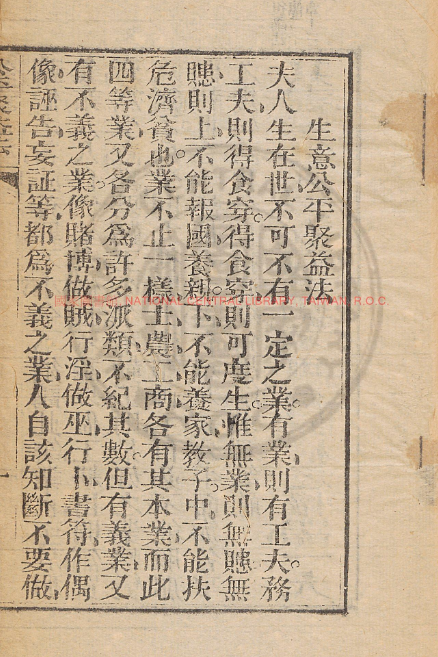 生意公平聚益法
夫人生在世不可不有一定之業有業則有工夫務
工夫則得食穿得食穿則可度生惟無業則無賺無
賺則上不能報國養親下不能養家教子中不能扶
危濟貧也業不止一樣士農工商各有其本業而此
四等業又各分為許多派類不紀其數但有義業又
有不義之業像賭博做賊行淫做巫行卜書符作偶
像誣告妄証等都為不義之業人自該知斷不要做
NATIONAL CENTRAL LIBRARY, TAIWAN, R.O.C.